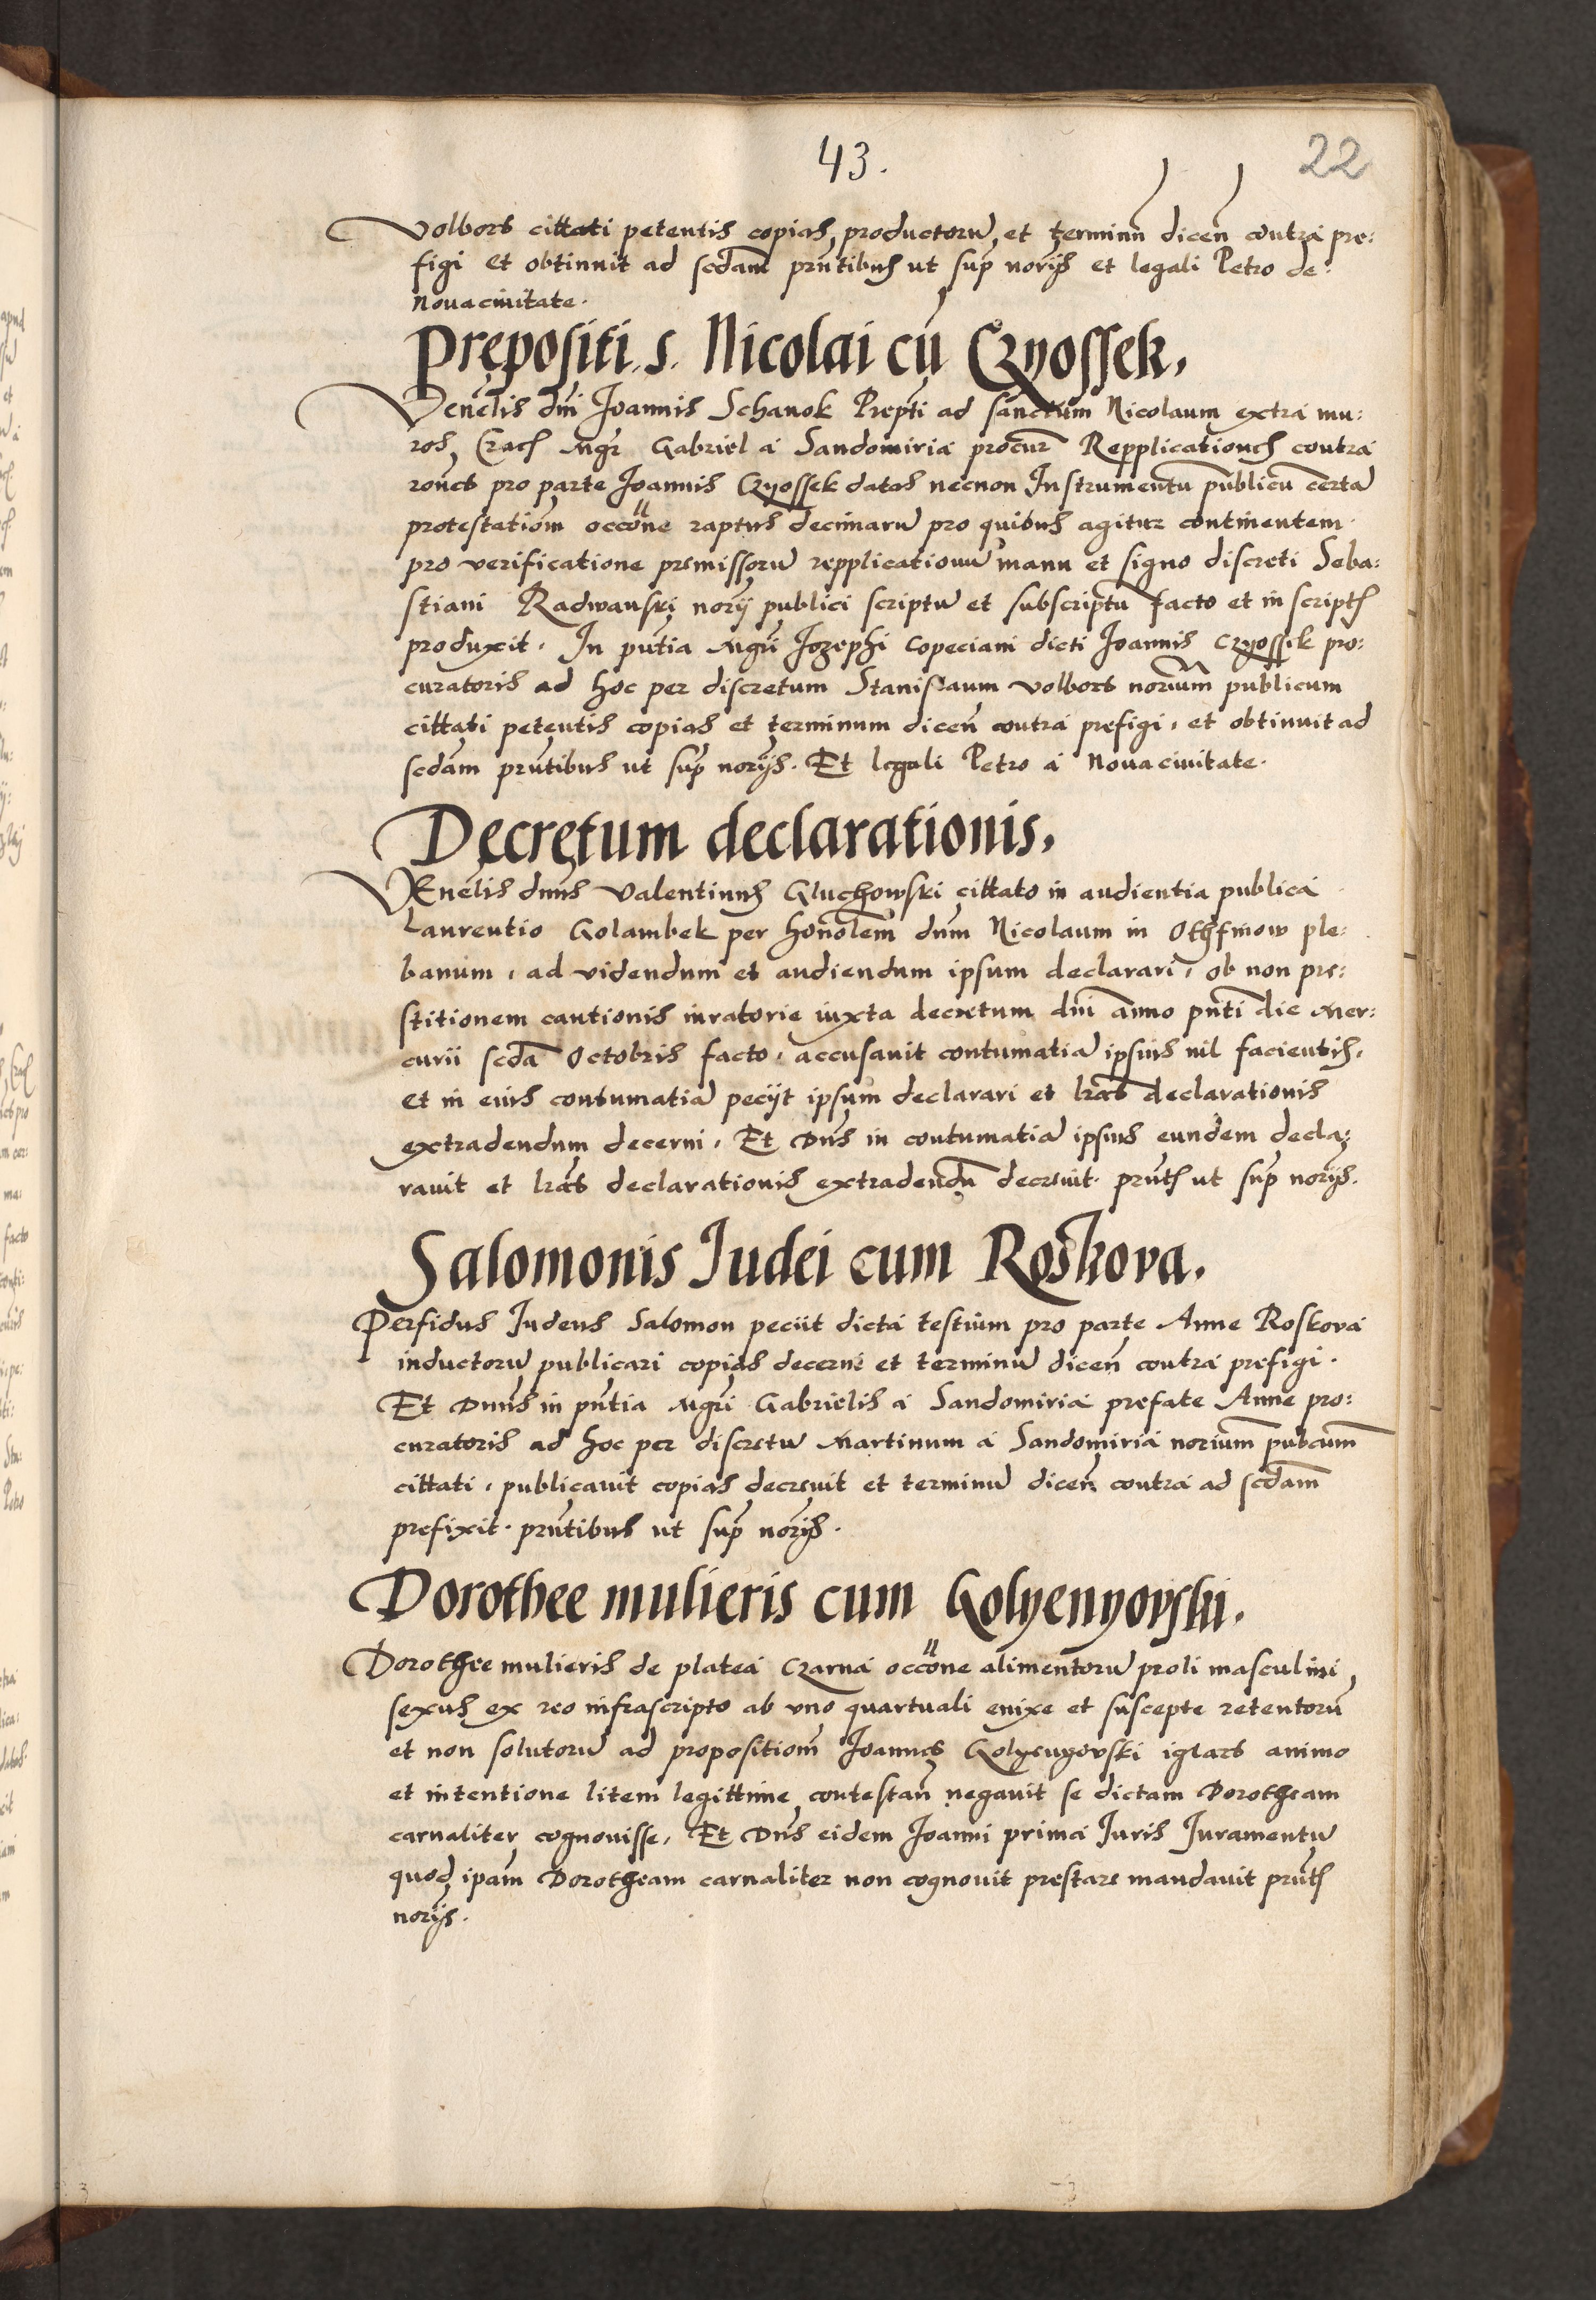 43.
22
Volbors cittati petentis copias, productorũ, et terminũ diceñ contra pre:
figi et obtinuit ad scdam prñtibus ut sup norijs et legali Petro de
Nouaciuitate.
Prepositi. s. Nicolai cũ Czyossek.
Venelis dni Joannis Schanok Prepti ad sanctum Nicolaum extra mu:
ros, Crac Mgr Gabriel a Sandomiria procur Repplicationes contra
rones pro parte Joannis Czyossek datas necnon Instrumentũ publicũ certã
protestationẽ occone raptus decimarũ pro quibus agitur continentem
pro verificatione premissorũ repplicationũ manu et signo discreti Seba:
stiani Radwanski norij publici scriptũ et subscriptũ facto et in scriptis
produxit. In pntia Mgri Jozephi Copeciani dicti Joannis Czyossek pro:
curatoris ad hoc per discretum Stanislaum Volbors norium publicum
cittati petentis copias et terminum diceñ contra prefigi, et obtinuit ad
scdam prñtibus ut sup norijs. Et legali Petro a Nouaciuitate.
Decretum declarationis.
VEnelis dnus Valentinus Gluchowski cittato in audientia publica
Laurentio Golambek per honolem dnm Nicolaum in Othfinow ple:
banum, ad videndum et audiendum ipsum declarari, ob non pre:
stitionem cautionis iuratorie iuxta decretum dni anno pnti die Mer:
curii scda Octobris facto, accusauit contumatiã ipsius nil facientis,
et in eius contumatiã peciit ipsum declarari et lras declarationis
extradendum decerni, Et Dns in contumatiã ipsius eundem decla:
rauit et lras declarationis extradendũ decreuit. prñts ut sup norijs.
Salomonis Judei cum Roskova.
Perfidus Judeus Salomon peciit dicta testium pro parte Anne Roskova
inductorũ publicari copias decerni et terminũ diceñ contra prefigi.
Et Dnus in pntia Mgri Gabrielis a Sandomiria prefate Anne pro:
curatoris ad hoc per discretũ Martinum a Sandomiria norium pubcum
cittati, publicauit copias decreuit et terminũ diceñ contra ad scdam
prefixit. prñtibus ut sup norijs.
Dorothee mulieris cum Golyenyovski.
Dorothee mulieris de platea Czarna occone alimentorũ proli masculini
sexus ex reo infrascripto ab vno quartuali enixe et suscepte retentorũ
et non solutorũ ad propositionẽ Joannes Golyenyovski iglars animo
et intentione litem legittime contestañ negauit se dictam Dorotheam
carnaliter cognouisse. Et Dns eidem Joanni prima Juris Juramentũ
quod ipam Dorotheam carnaliter non cognouit prestare mandauit prñts
norijs.